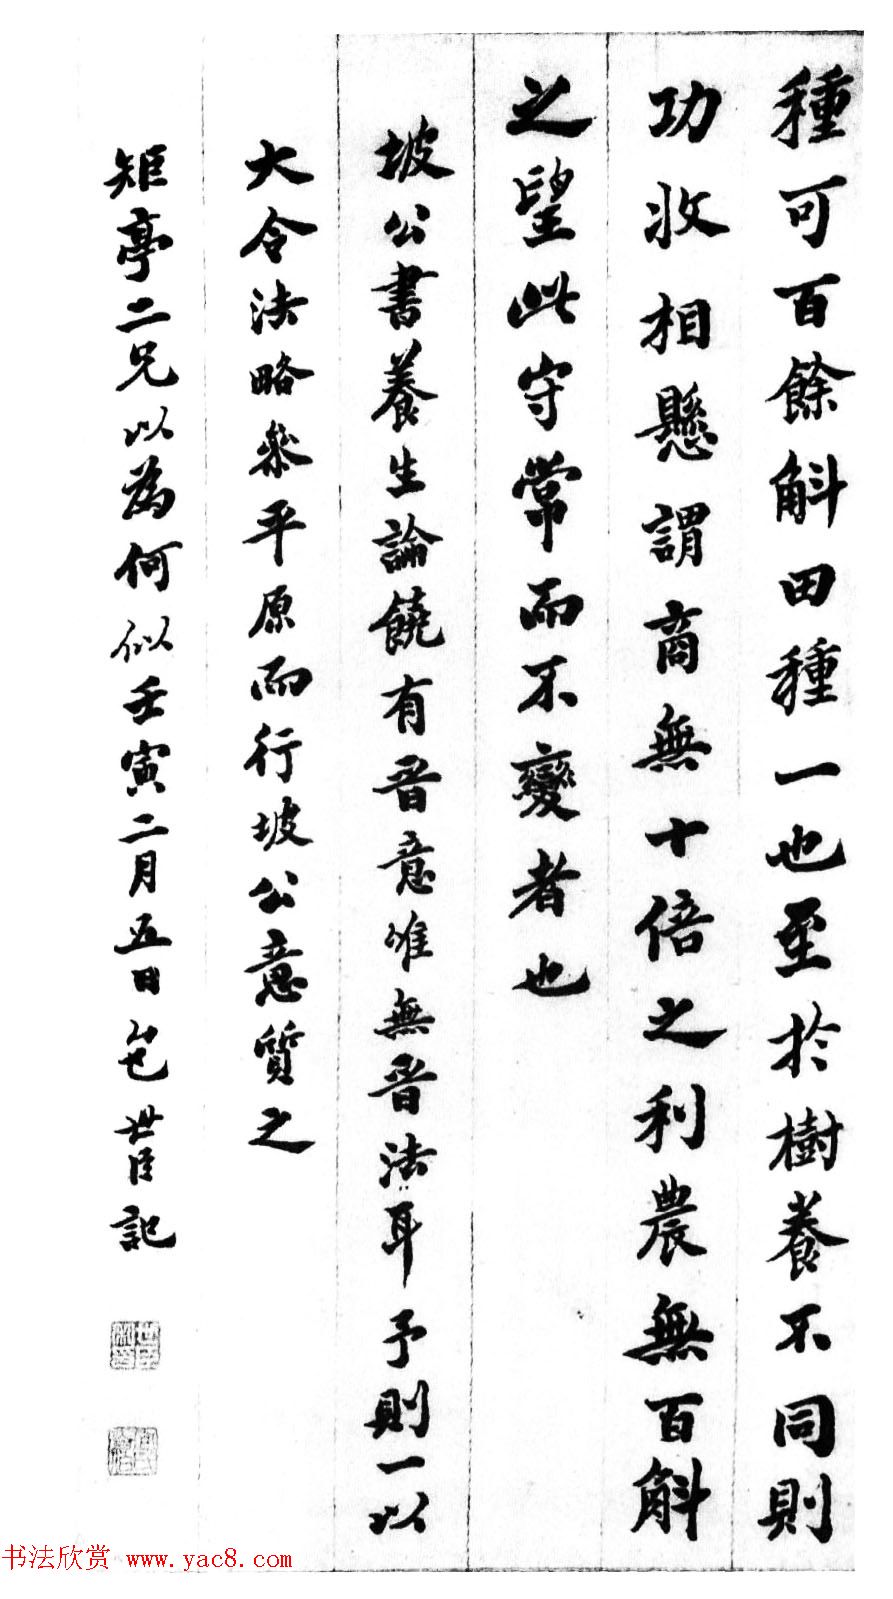 種可百餘斛田種一也至於樹養不同則
功收相懸謂商無十倍之利農無百斛
之望此守常而不變者也
坡公書養生論饒有晉意唯無晉法耳予則一以
大令法略参平原而行坡公意質之
矩亭二兄以為何似壬寅二月五日包世臣記
书法欣赏 www.yac8.com